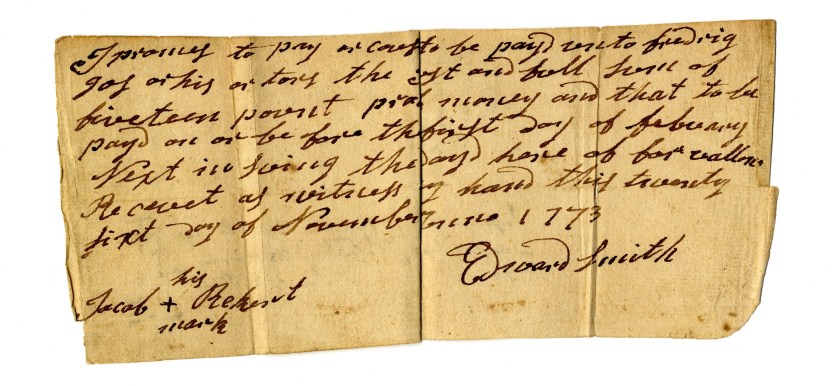 I promes to pay or cows to be payd unto fredrig
gos or his or tors the just and full sum of
fiveteen pount prok money and that to be
payd on or be fore the first day of february
Next in suing the dayd here of for vallou
Recevet as witness my hand this twenty
sixt day of November anno 1773
Edward Smith
his
Jacob + Rekert
mark